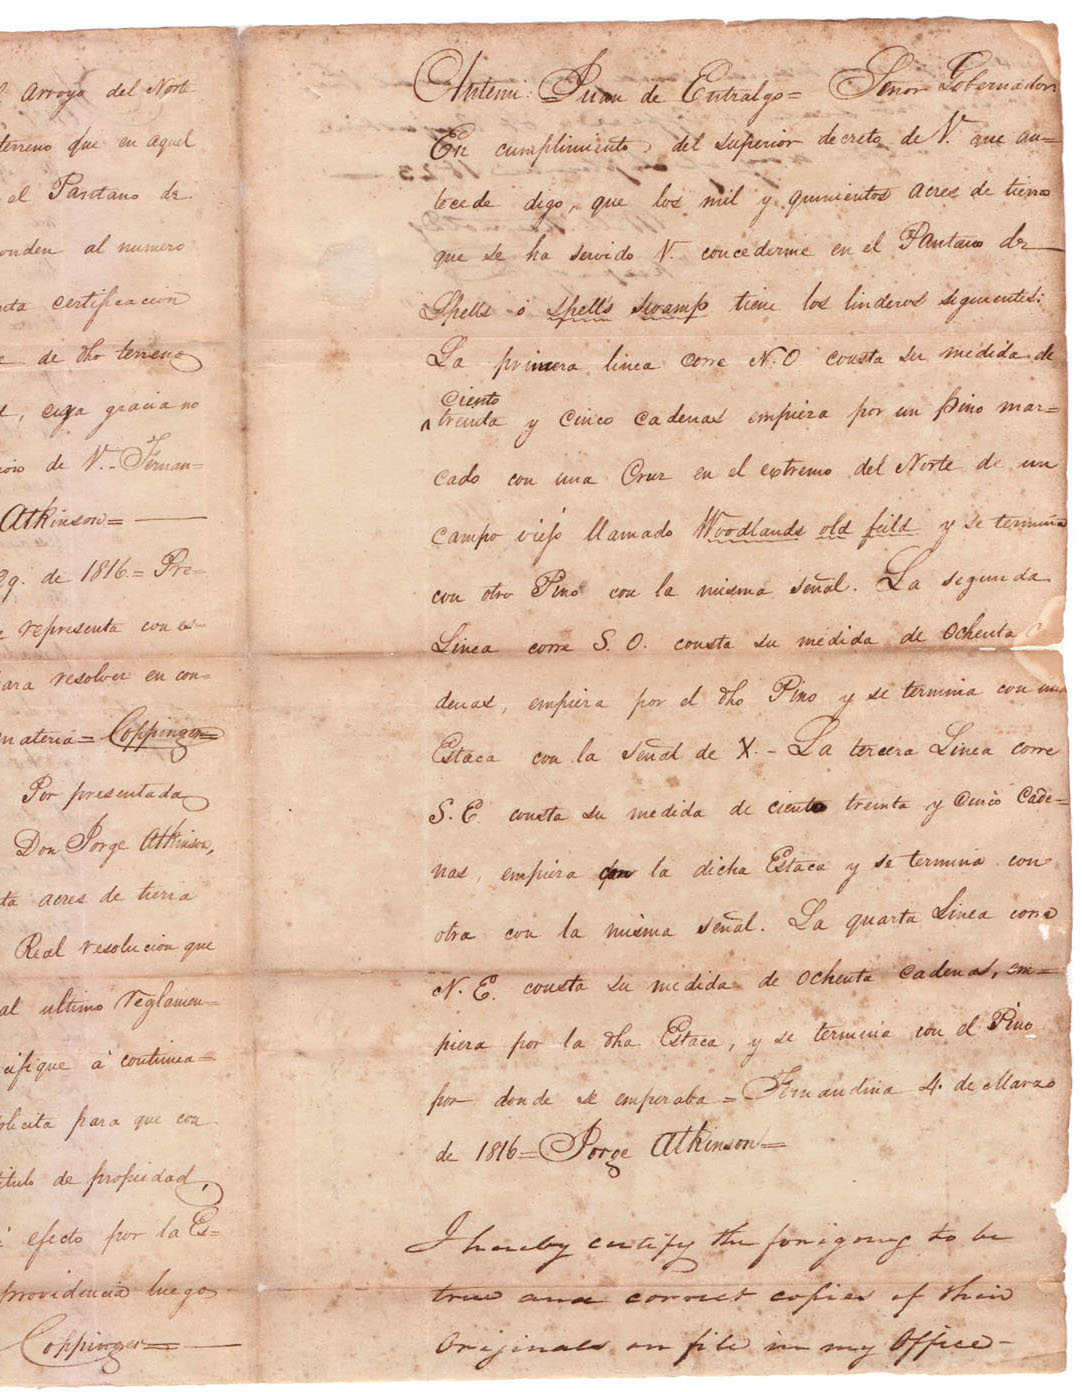 Arroyo del Norte
terreno que en aquel
el Pantano de
onden al numero
certificacion
de dho terreno
cuya gracia no
de V. - Fernan=
Atkinson=
de 1816= Pre-
representa con es-
ara resolver en con-
materia= Coppinger=
Por presentada
Don Jorge Atkinson,
ta acres de tierra
Real resolucion que
al ultimo reglamen=
cifique a continua=
olicita para que con
titulo de propiedad,
efecto por la Es=
providencia luego
Coppinger=
Antemi: Juan de Entralgo= Señor Gobernador
En cumplimiento del superior decreto de V. que an=
tecede digo, que los mil y quinientos acres de tierra
que se ha servido V. concederme en el Pantano de
Spells o spell's swamp tiene los linderos siguientes:
La primera linea corre N.O consta su medida de
ciento
^treinta y cinco cadenas empieza por un pino mar=
cado con una Cruz en el extremo del Norte de un
campo viejo llamado Woodlands old feild y se termina
con otro Pino con la misma señal. La segunda
Linea corre S. O. consta su medida de ochenta
denas, empieza por el dho Pino y se termina con una
Estaca con la señal de X. - La tercera Linea corre
S. E. consta su medida de ciento treinta y cinco cade=
nas, empieza con la dicha Estaca y se termina con
otra con la misma señal. La quarta Linea corre
N. E. consta su medida de ochenta cadenas, em=
pieza por la dha Estaca, y se termina con el Pino
por donde se empezaba= Fernandina 4. de Marzo
de 1816= Jorge Atkinson=
I hereby certify the foregoing to be
true and correct copies of their
Originals on file in my Office-